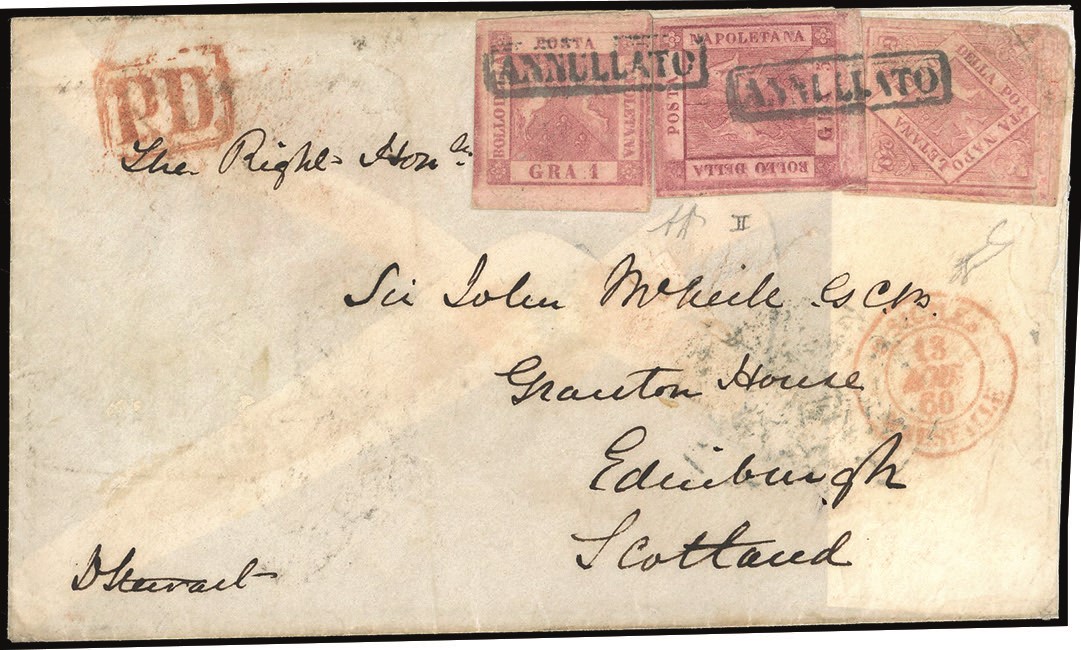 P.D.
POSTA
BOLLO DELLA
NAPOLETANA
GRA 1
ANNULLATO
NAPOLETANA
POSTA
BOLLO DELLA
ANNULLATO
BOLLO
DELLA POSTA NAPOLETANA
The Right Honble
II
Sir John McNeill G.C.B.
Granton House
Edinburgh
Scotland
D Stewart
13
AOUT
60
MARSEILLE